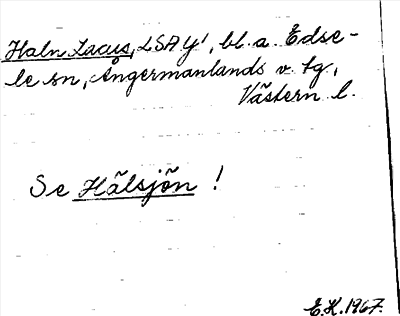 Haln Lacus, LSA Y', bl. a. Edse-
le sn, Ångermanlands v. tg,
Västern. l.
Se Hälsjön !
E.K. 1967.